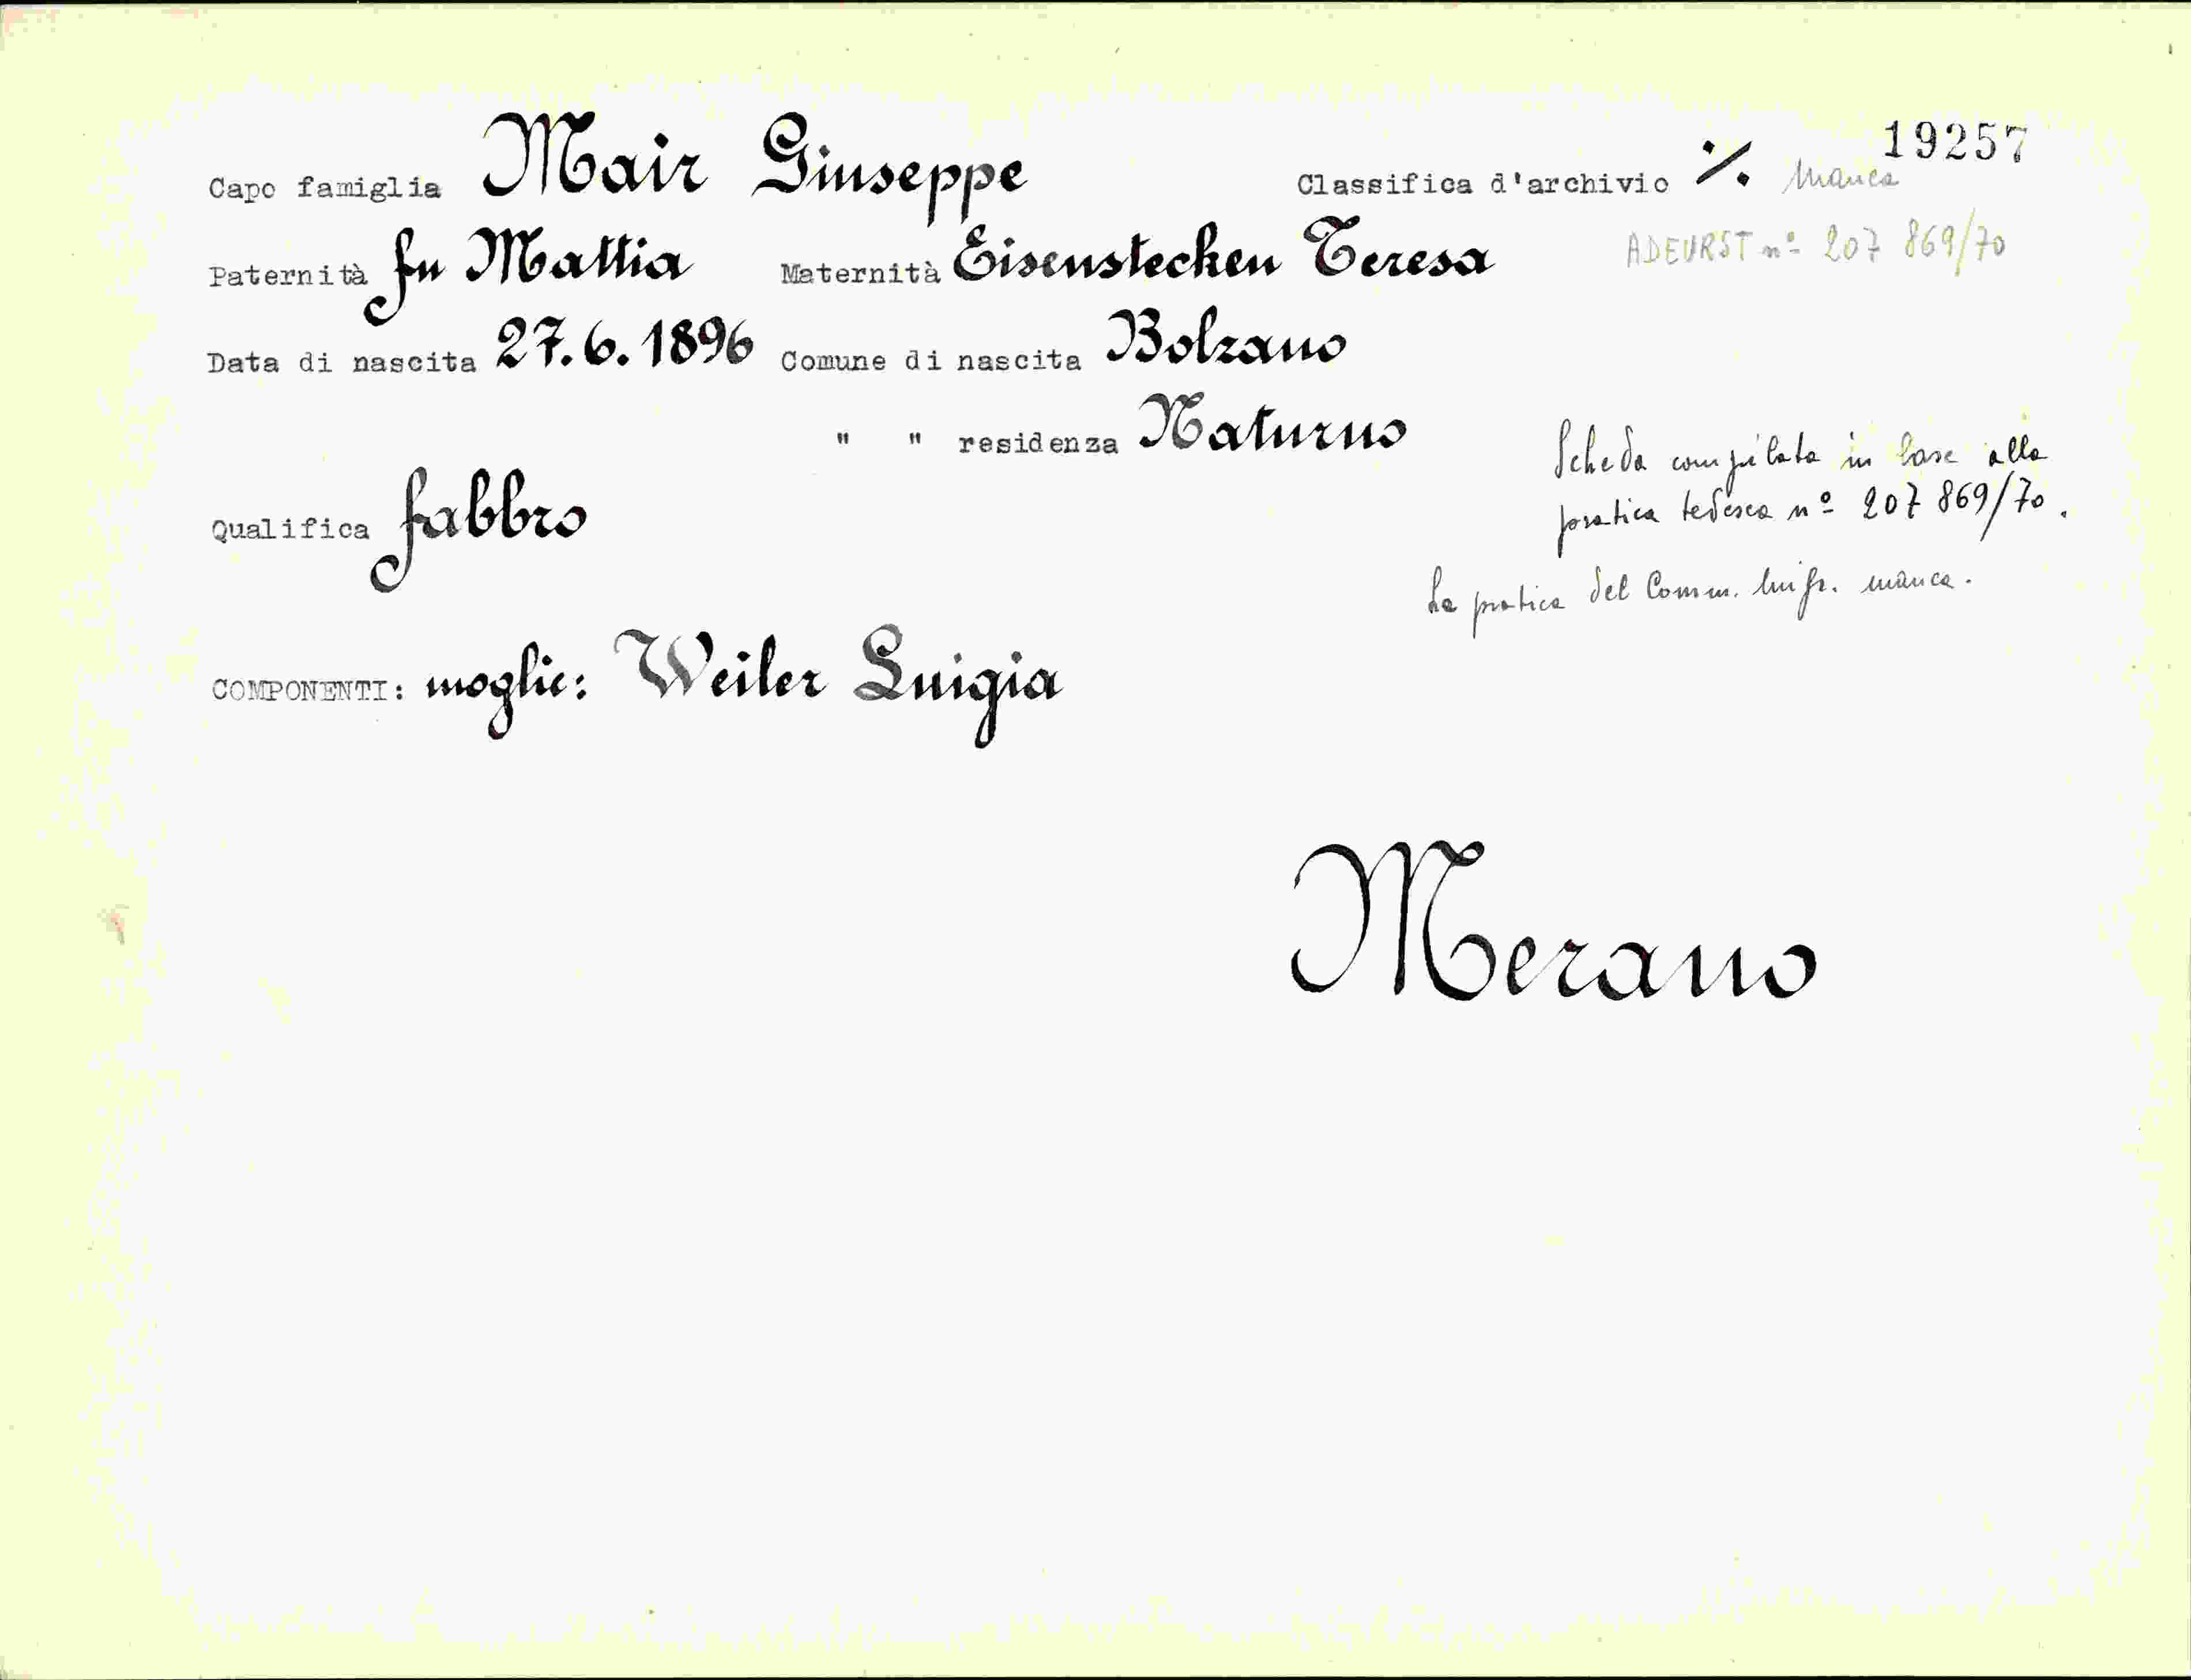 19257
Capo famiglia Mair Giuseppe Classifica d'archivio ·/. manca
Paternità fu Mattia Maternità Eisenstecken Teresa ADEURST nº 207 869/70
Data di nascita 27.6.1896 Comune di nascita Bolzano
" " residenza Naturno
Scheda compilata in base alla
pratica tedesca nº 207 869/70.
Qualifica fabbro
La pratica del Comm. migr. manca.
COMPONENTI: moglie: Weiler Luigia
Merano